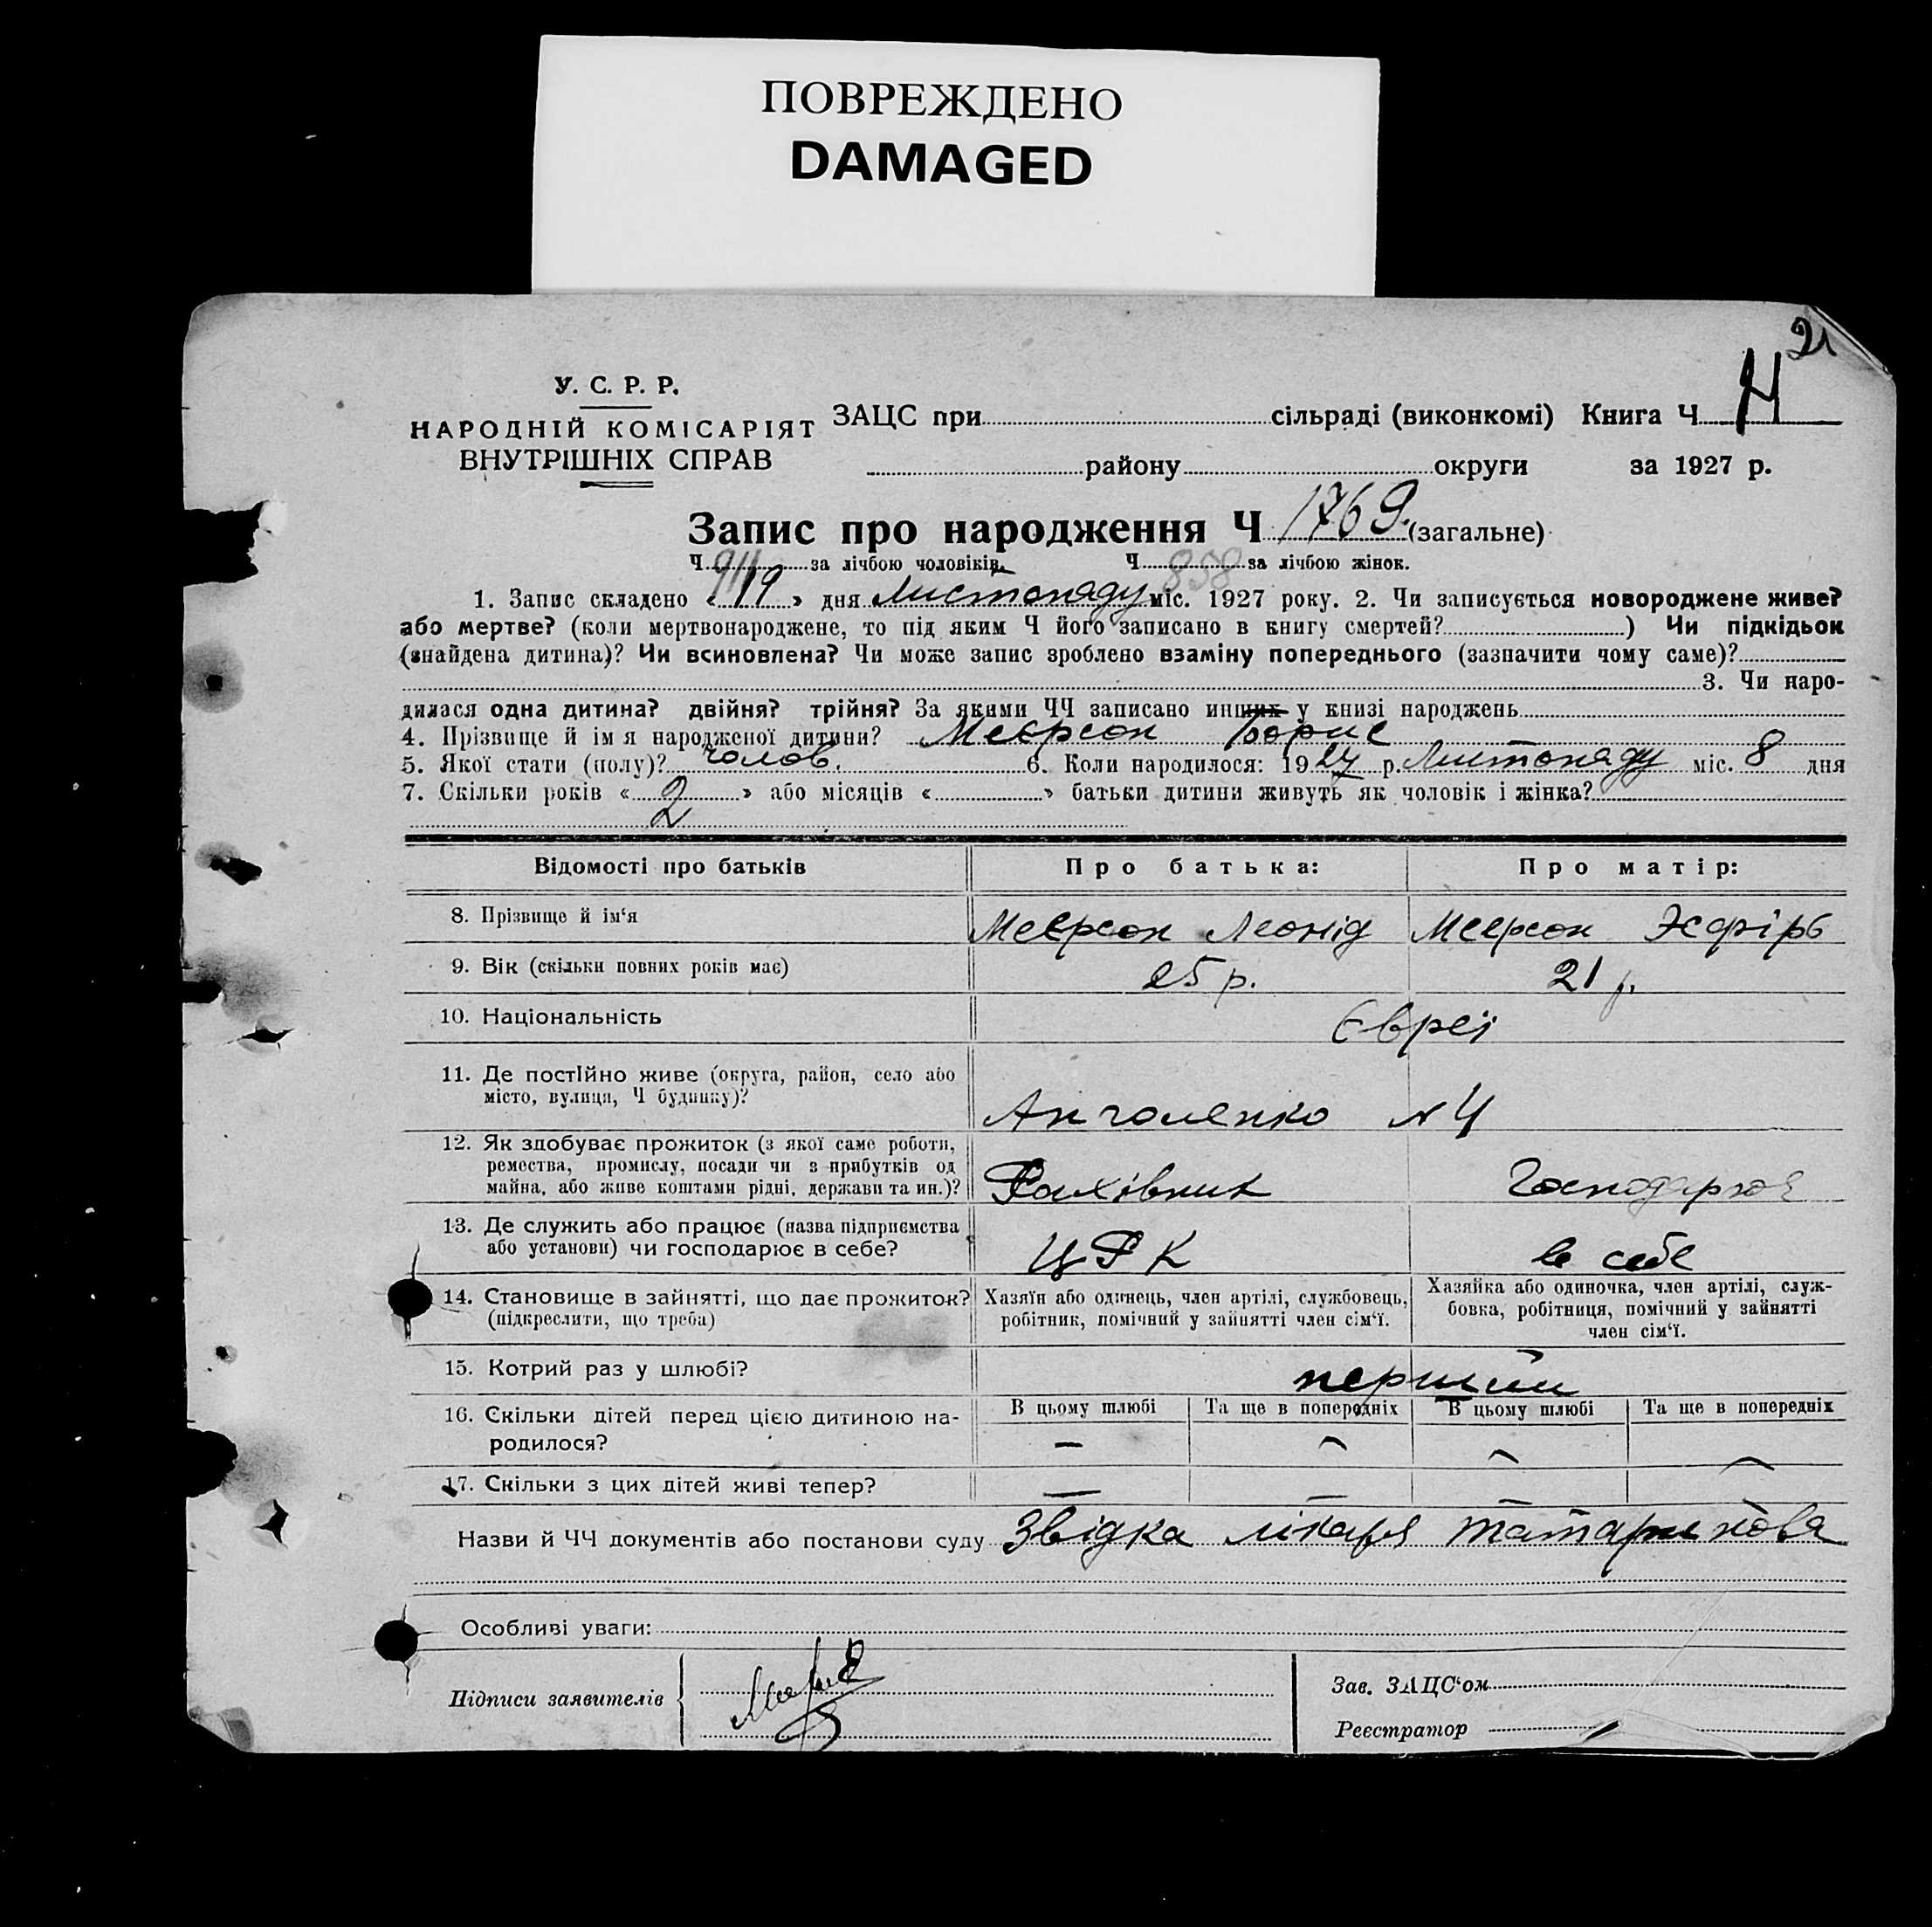 ПОВРЕЖДЕНО
DAMAGED
21
У. С. Р. Р.
НАРОДНІЙ КОМІСАРІЯТ
ВНУТРІШНІХ СПРАВ
ЗАЦС при сільраді (виконкомі) Книга Ч
району округи за 1927 р.
Запис про народження Ч 1769. (загальне)
Ч 911 за лічбою чоловіків. Ч 858 за лічбою жінок.
1. Запис складено « 19 » дня Листопаду міс. 1927 року. 2. Чи записується новороджене живе?
або мертве? (коли мертвонароджене, то під яким Ч його записано в книгу смертей? ) Чи підкідьок
(знайдена дитина)? Чи всиновлена? Чи може запис зроблено взаміну попереднього (зазначити чому саме)?
3. Чи наро-
дилася одна дитина? двійня? трійня? За якими ЧЧ записано инших у книзі народжень
4. Прізвище й імя народженої дитини? Меєрсон Борис
5. Якої стати (полу)? чолов. 6. Коли народилося: 1927 р. Листопаду міс. 8 дня
7. Скільки років « 2 » або місяців « » батьки дитини живуть як чоловік і жінка?
2
Відомості про батьків Про батька: Про матір:
8. Прізвище й ім‘я Меєрсон Леонід Меєрсон Эсфірь
9. Вік (скільки повних років має) 25 р. 21 р.
10. Національність Євреї
11. Де постійно живе (округа, район, село або
місто, вулиця, Ч будинку)? № 4
12. Як здобуває прожиток (з якої саме роботи,
ремества, промислу, посади чи з прибутків од
майна, або живе коштами рідні, держави та ин.)? Фахівник Господарює
13. Де служить або працює (назва підприємства
або установи) чи господарює в себе? ЦРК в себе
14. Становище в зайнятті, що дає прожиток?
(підкреслити, що треба)
Хазяїн або одинець, член артілі, службовець,
робітник, помічний у зайнятті член сім‘ї.
Хазяйка або одиночка, член артілі, служ-
бовка, робітниця, помічний у зайнятті
член сім‘ї.
15. Котрий раз у шлюбі? перший
16. Скільки дітей перед цією дитиною на-
родилося?
В цьому шлюбі Та ще в попередніх В цьому шлюбі Та ще в попередніх
— — — —
17. Скільки з цих дітей живі тепер? — — — —
Назви й ЧЧ документів або постанови суду Звідка лікаря
Особливі уваги:
Підписи заявителів
Зав. ЗАЦС‘ом
Реєстратор